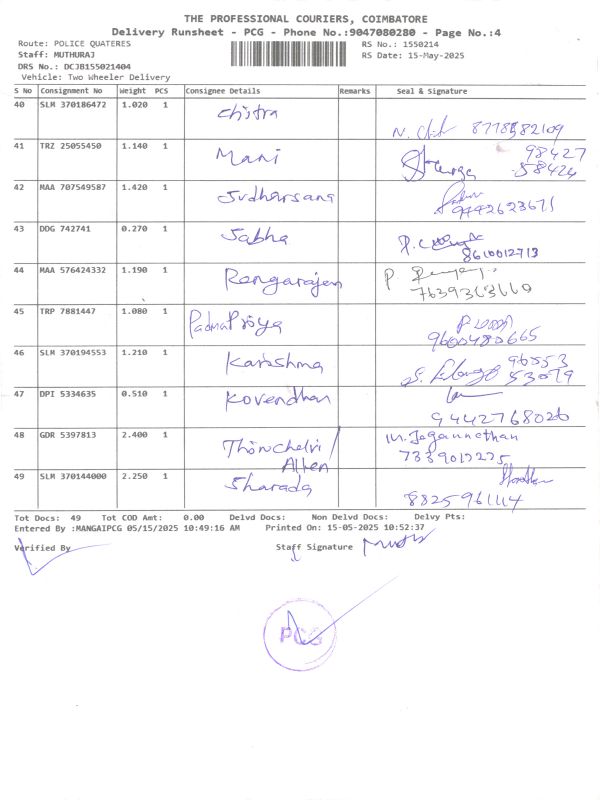 THE PROFESSIONAL COURIERS, COIMBATORE
Delivery Runsheet - PCG - Phone No.:9047080280 - Page No.:4
Route: POLICE QUATERES
RS No.: 1550214
Staff: MUTHURAJ
RS Date: 15-May-2025
DRS No.: DCJB155021404
Vehicle: Two Wheeler Delivery
S No Consignment No Weight PCS Consignee Details Remarks Seal & Signature
40 SLM 370186472 1.020 1 Chitra
41 TRZ 25055450 1.140 1 Mani 98427
58424
42 MAA 707549587 1.420 1 Sudharsana
9442623671
43 DDG 742741 0.270 1 Sabha
8610012713
44 MAA 576424332 1.190 1 Rengarajen
45 TRP 7881447 1.080 1 Padma Priya
9600480665
46 SLM 370194553 1.210 1 Karishma 96553
53079
47 DPI 5334635 0.510 1 Kovendhan
9442768026
48 GDR 5397813 2.400 1 M. Jegannathan
Allen
49 SLM 370144000 2.250 1 Sharada
Tot Docs: 49 Tot COD Amt: 0.00 Delvd Docs: Non Delvd Docs: Delvy Pts:
Entered By :MANGAIPCG 05/15/2025 10:49:16 AM Printed On: 15-05-2025 10:52:37
Verified By Staff Signature
PCG